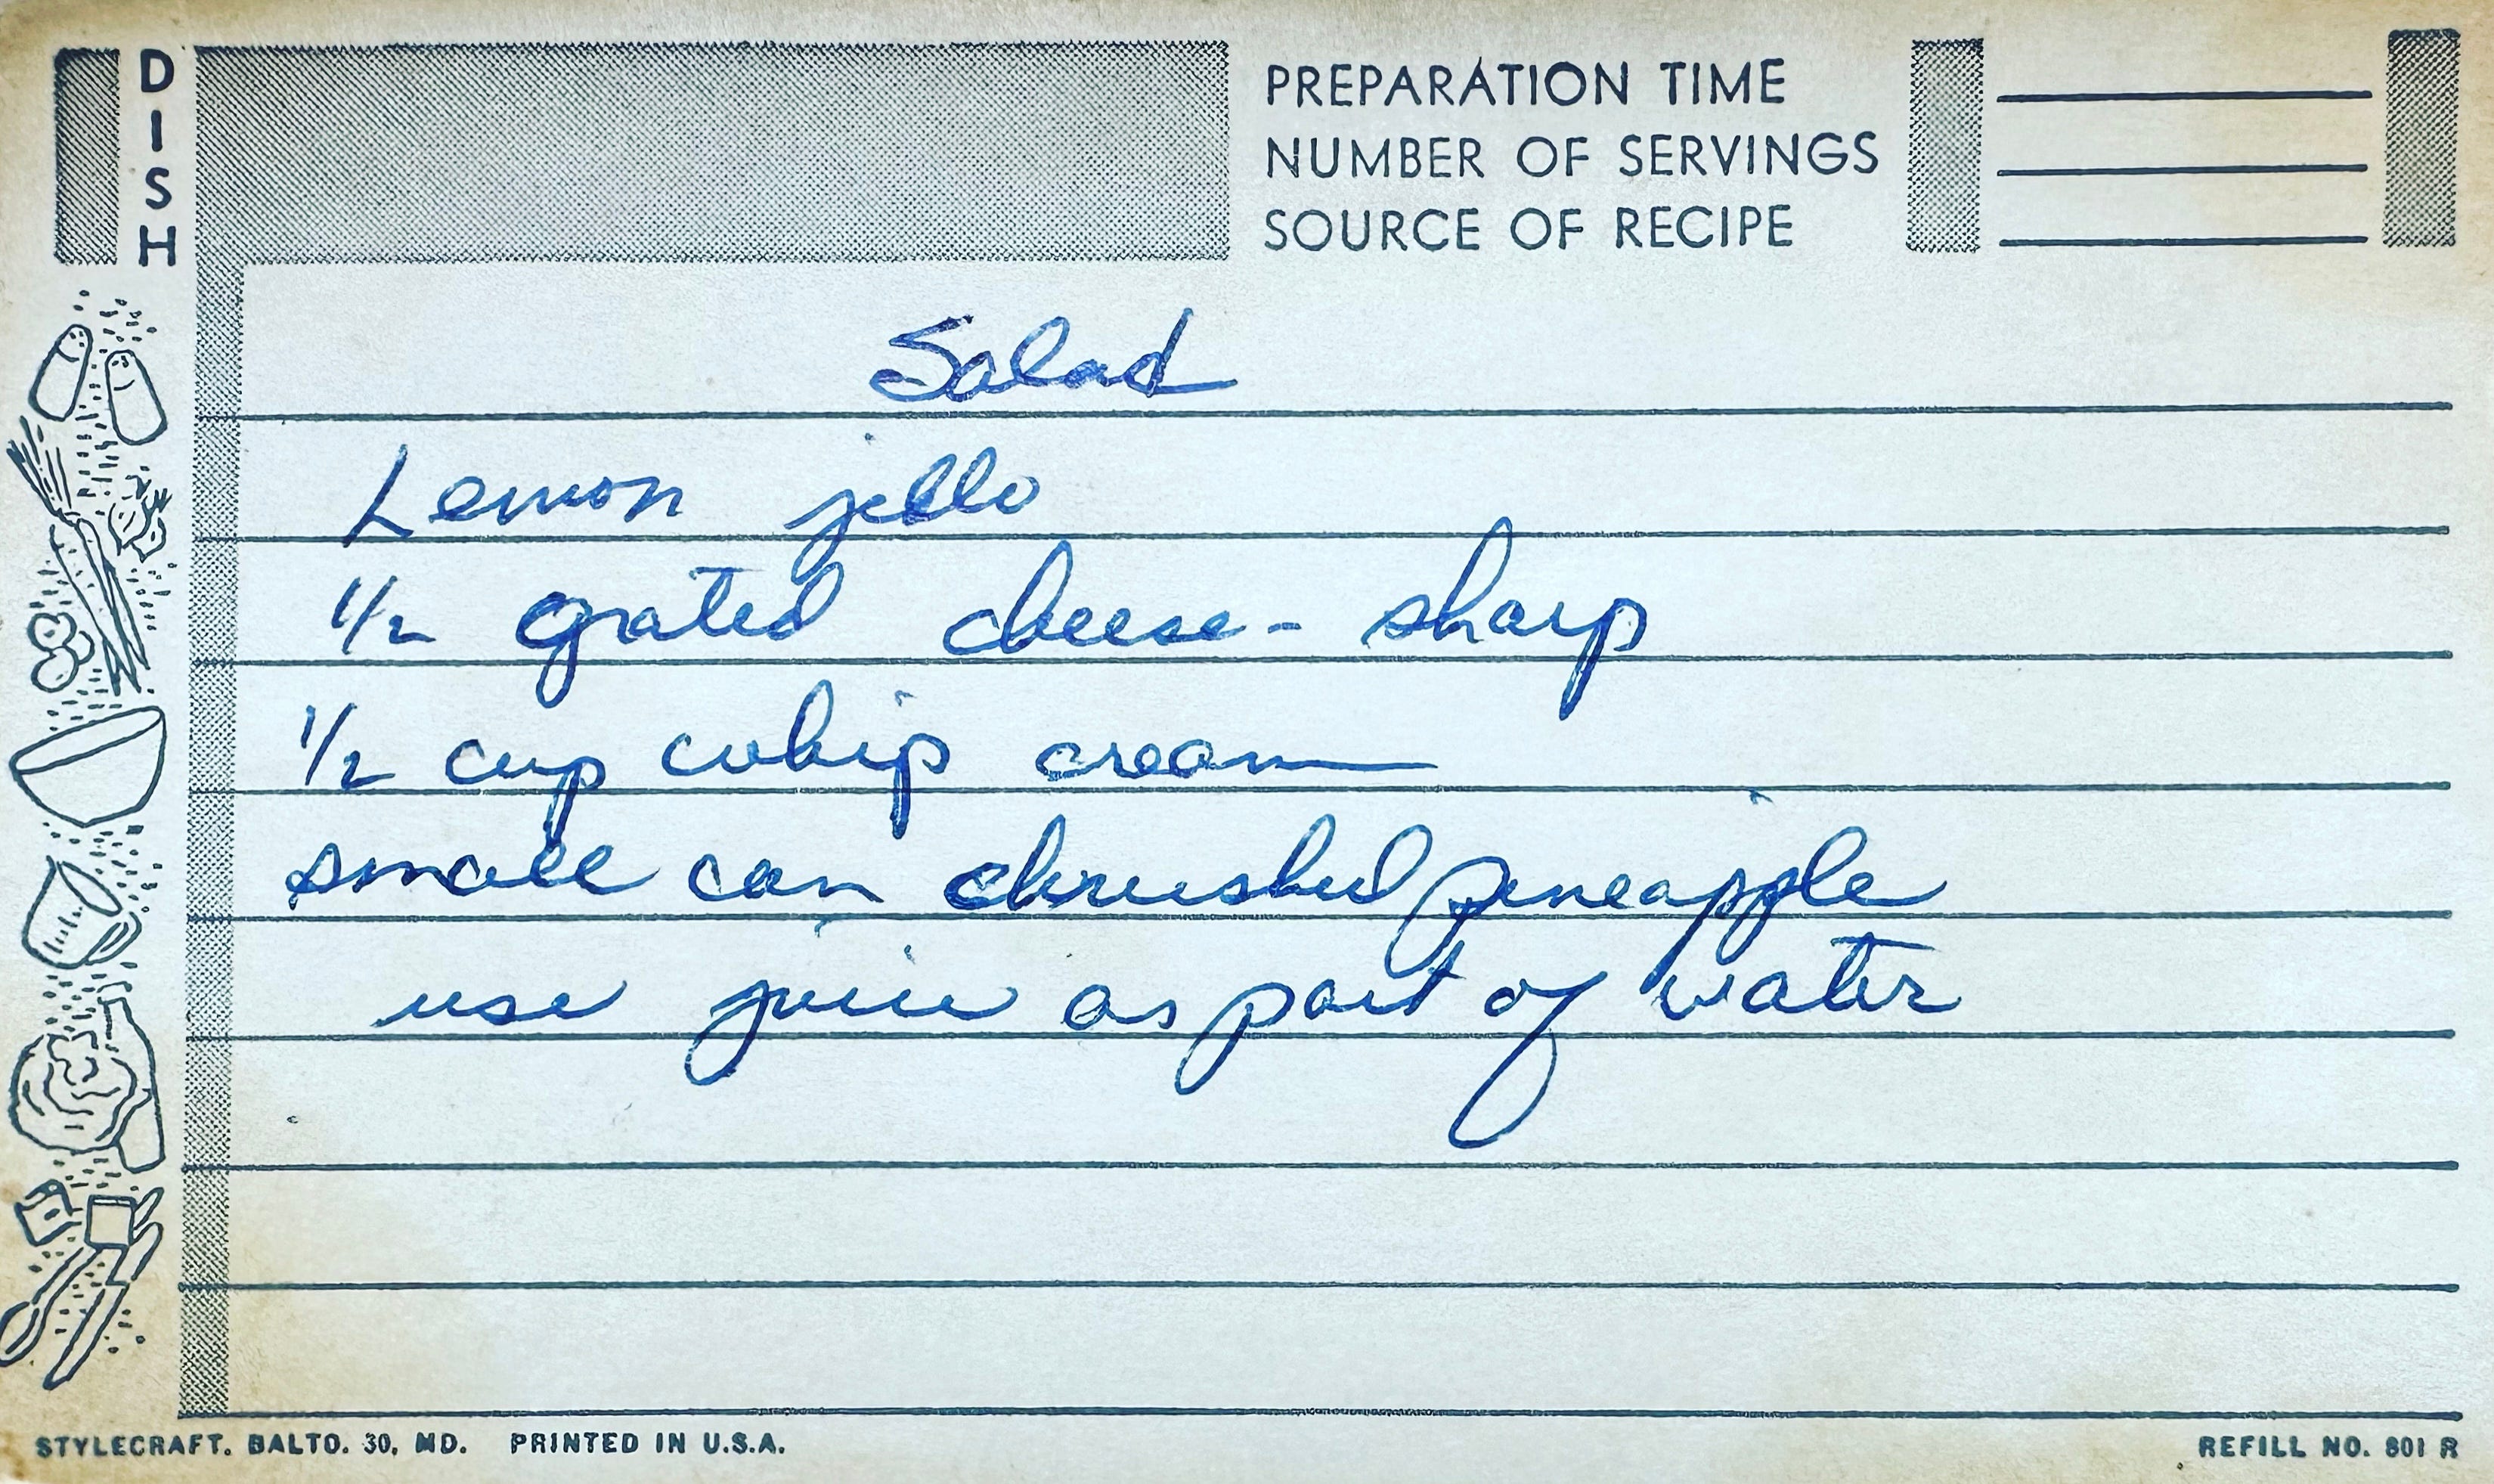 DISH
PREPARATION TIME
NUMBER OF SERVINGS
SOURCE OF RECIPE
Salad
Lemon jello
1/2 grated cheese - sharp
1/2 cup whip cream
small can chrushed pineapple
use juice as part of water
STYLECRAFT. BALTO. 30, MD. PRINTED IN U.S.A.
REFILL NO. 801 R